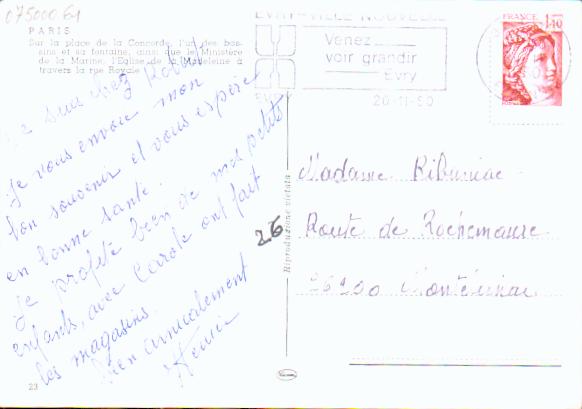 07500061
PARIS
Sur la place de la Concorde, l'un des bas-
sins et sa fontaine, ainsi que le Ministère
de la Marine, l'Eglise de la Madeleine à
travers la rue Royale
EVRY-VILLE NOUVELLE
Venez
voir grandir
Evry
20-11-80
FRANCE 1,40
Je suis chez
Je vous envoie mon
bon souvenir et vous espère
en bonne santé.
Je profite bien de mes petits
enfants, avec Carole ont fait
les magasins.
Bien amicalement
Riproduzione vietata
26
Madame
Route de Rochemaure
26200 Montélimar
23